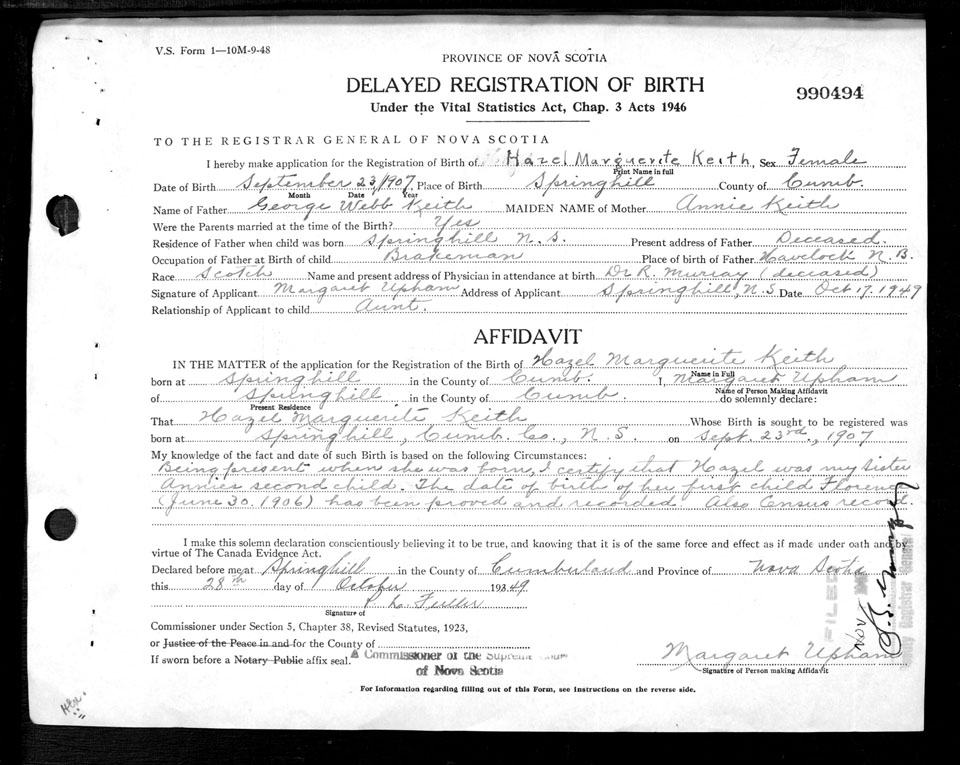 V.S. Form 1—10M-9-48
PROVINCE OF NOVA SCOTIA
DELAYED REGISTRATION OF BIRTH
990494
Under the Vital Statistics Act, Chap. 3 Acts 1946
TO THE REGISTRAR GENERAL OF NOVA SCOTIA
I hereby make application for the Registration of Birth of Hazel Marguerite Keith, Sex Female
Print Name in full
Date of Birth September 23/1907, Place of Birth Springhill County of Cumb.
Month Date Year
Name of Father George Webb Keith MAIDEN NAME of Mother Annie Keith
Were the Parents married at the time of the Birth? Yes
Residence of Father when child was born Springhill N.S. Present address of Father Deceased.
Occupation of Father at Birth of child Brakeman Place of birth of Father Havelock N.B.
Race Scotch Name and present address of Physician in attendance at birth Dr R. Murray (deceased)
Signature of Applicant Margaret Upham Address of Applicant Springhill, N.S. Date Oct 17, 1949
Relationship of Applicant to child Aunt.
AFFIDAVIT
IN THE MATTER of the application for the Registration of the Birth of Hazel Marguerite Keith
Name in Full
born at Springhill in the County of Cumb. I, Margaret Upham
Name of Person Making Affidavit
of Springhill in the County of Cumb. do solemnly declare:
Present Residence
That Hazel Marguerite Keith Whose Birth is sought to be registered was
born at Springhill, Cumb. Co., N.S. on Sept. 23rd., 1907
My knowledge of the fact and date of such Birth is based on the following Circumstances:
Being present when she was born, I certify that Hazel was my sister
Annie's second child. The date of birth of her first child Florence
(June 30, 1906) has been proved and recorded. Also Census record.
I make this solemn declaration conscientiously believing it to be true, and knowing that it is of the same force and effect as if made under oath and by
virtue of The Canada Evidence Act.
Declared before me at Springhill in the County of Cumberland and Province of Nova Scotia
this 28th day of October 1949
Signature of
Commissioner under Section 5, Chapter 38, Revised Statutes, 1923,
or Justice of the Peace in and for the County of
If sworn before a Notary Public affix seal.
A Commissioner of the Supreme Court
of Nova Scotia
Margaret Upham
Signature of Person making Affidavit
For Information regarding filling out of this Form, see instructions on the reverse side.
FILED
NOV
Deputy Registrar General